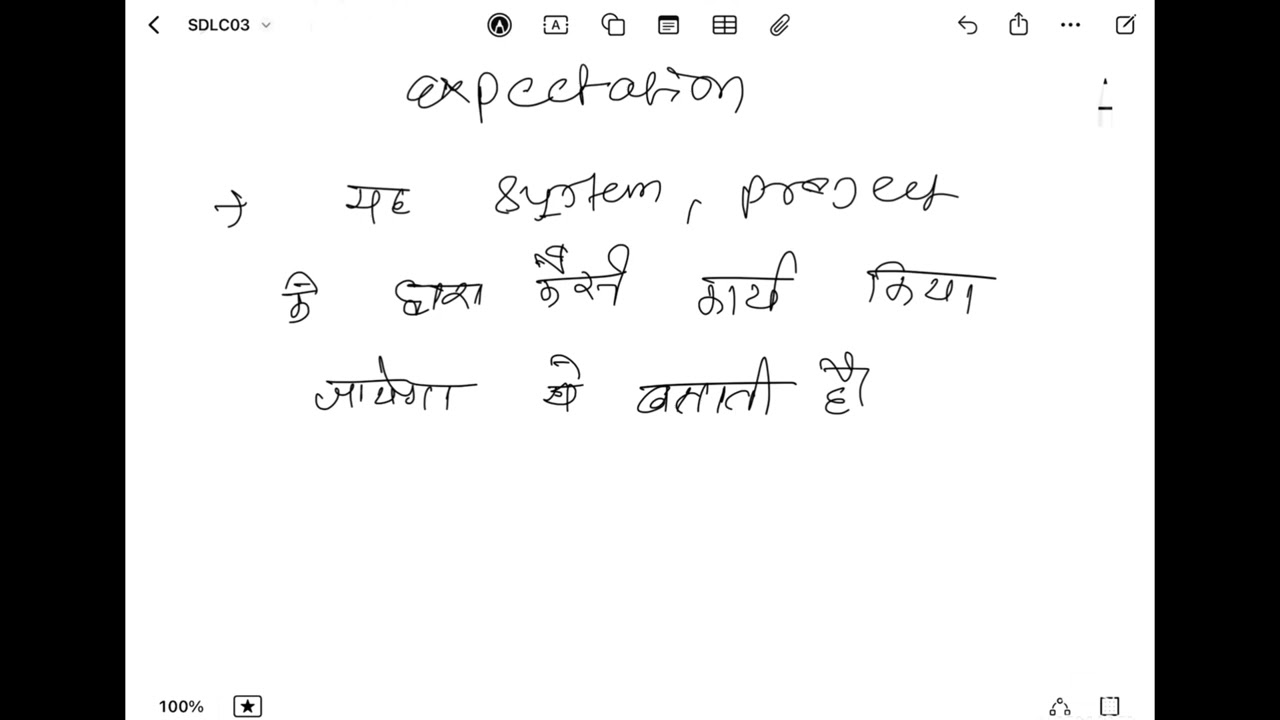 SDLC03
expectation
→ यह system, project
के द्वारा कैसे कार्य किया
जायेगा ये बताती है
100%